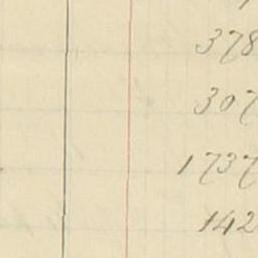 378
307
1737
142